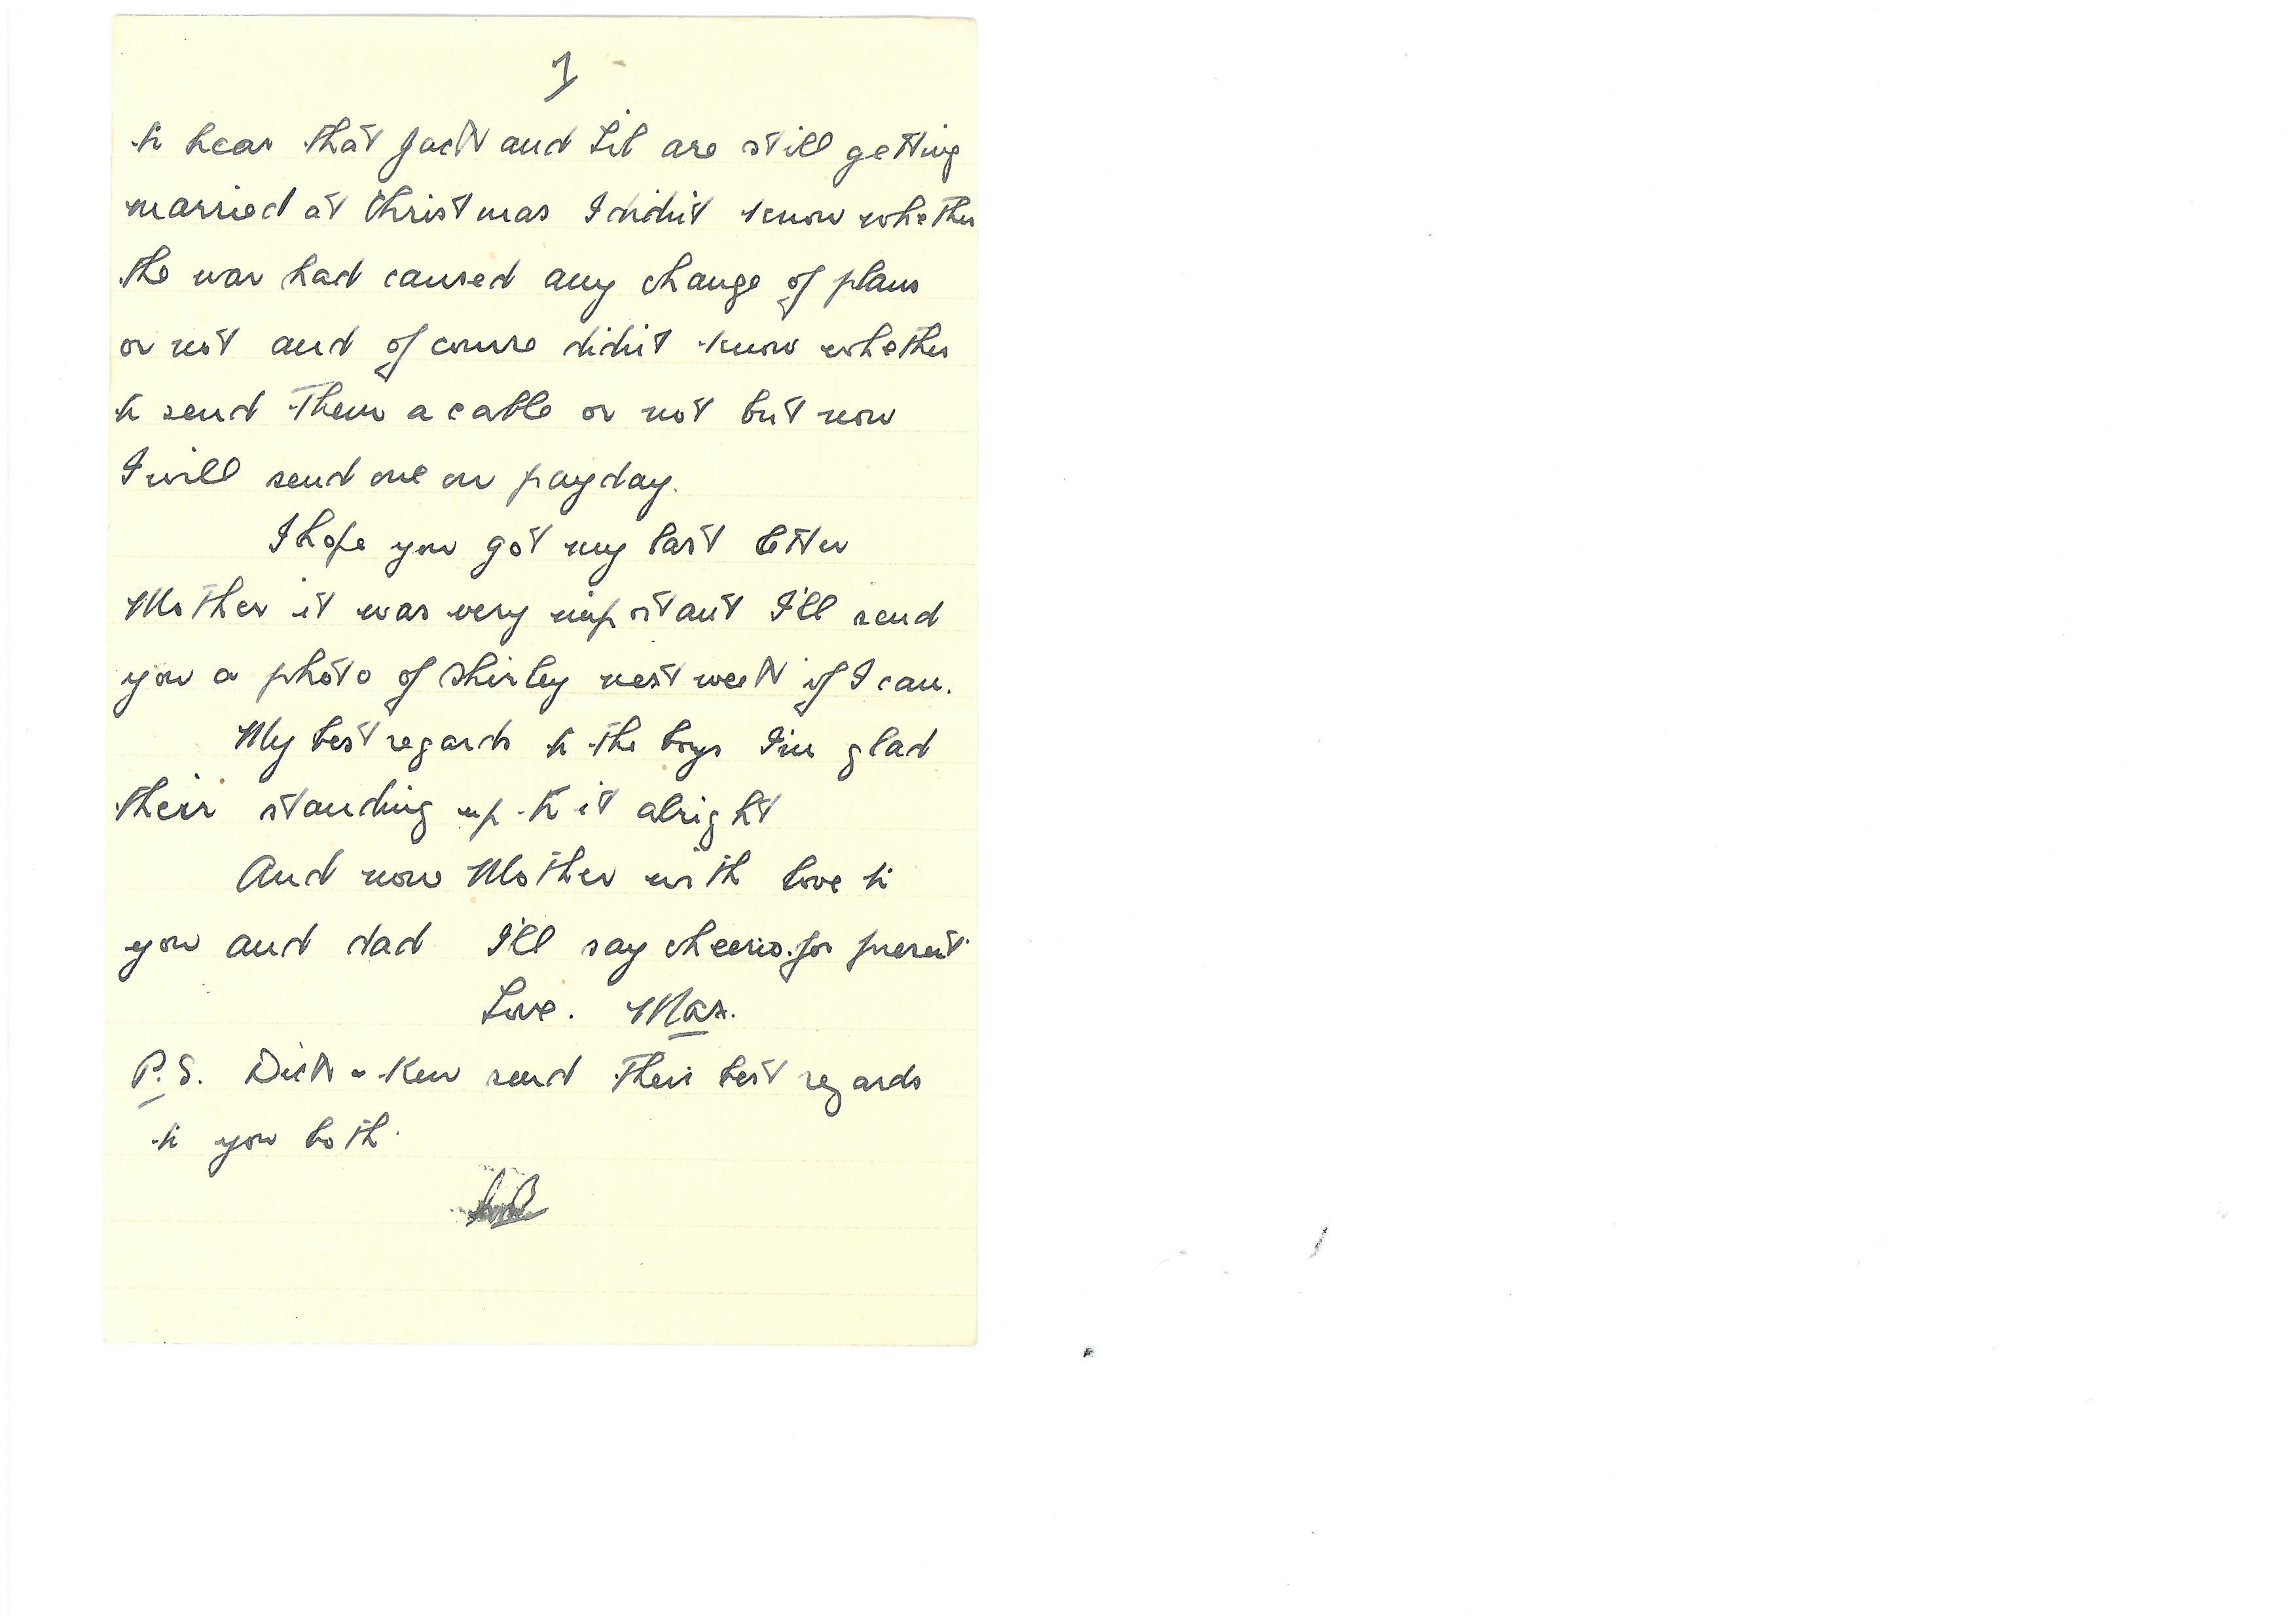 7
to hear that Jack and Lil are still getting
married at Christmas I didn't know whether
the war had caused any change of plans
or not and of course didn't know whether
to send them a cable or not but now
I will send one on payday.
I hope you got my last letter
Mother it was very important I'll send
you a photo of Shirley next week if I can.
My best regards to the boys I'm glad
their standing up to it alright
And now Mother with love to
you and dad I'll say cheerio. for present
Love. Max.
P.S. Dick & Ken send their best regards
to you both.